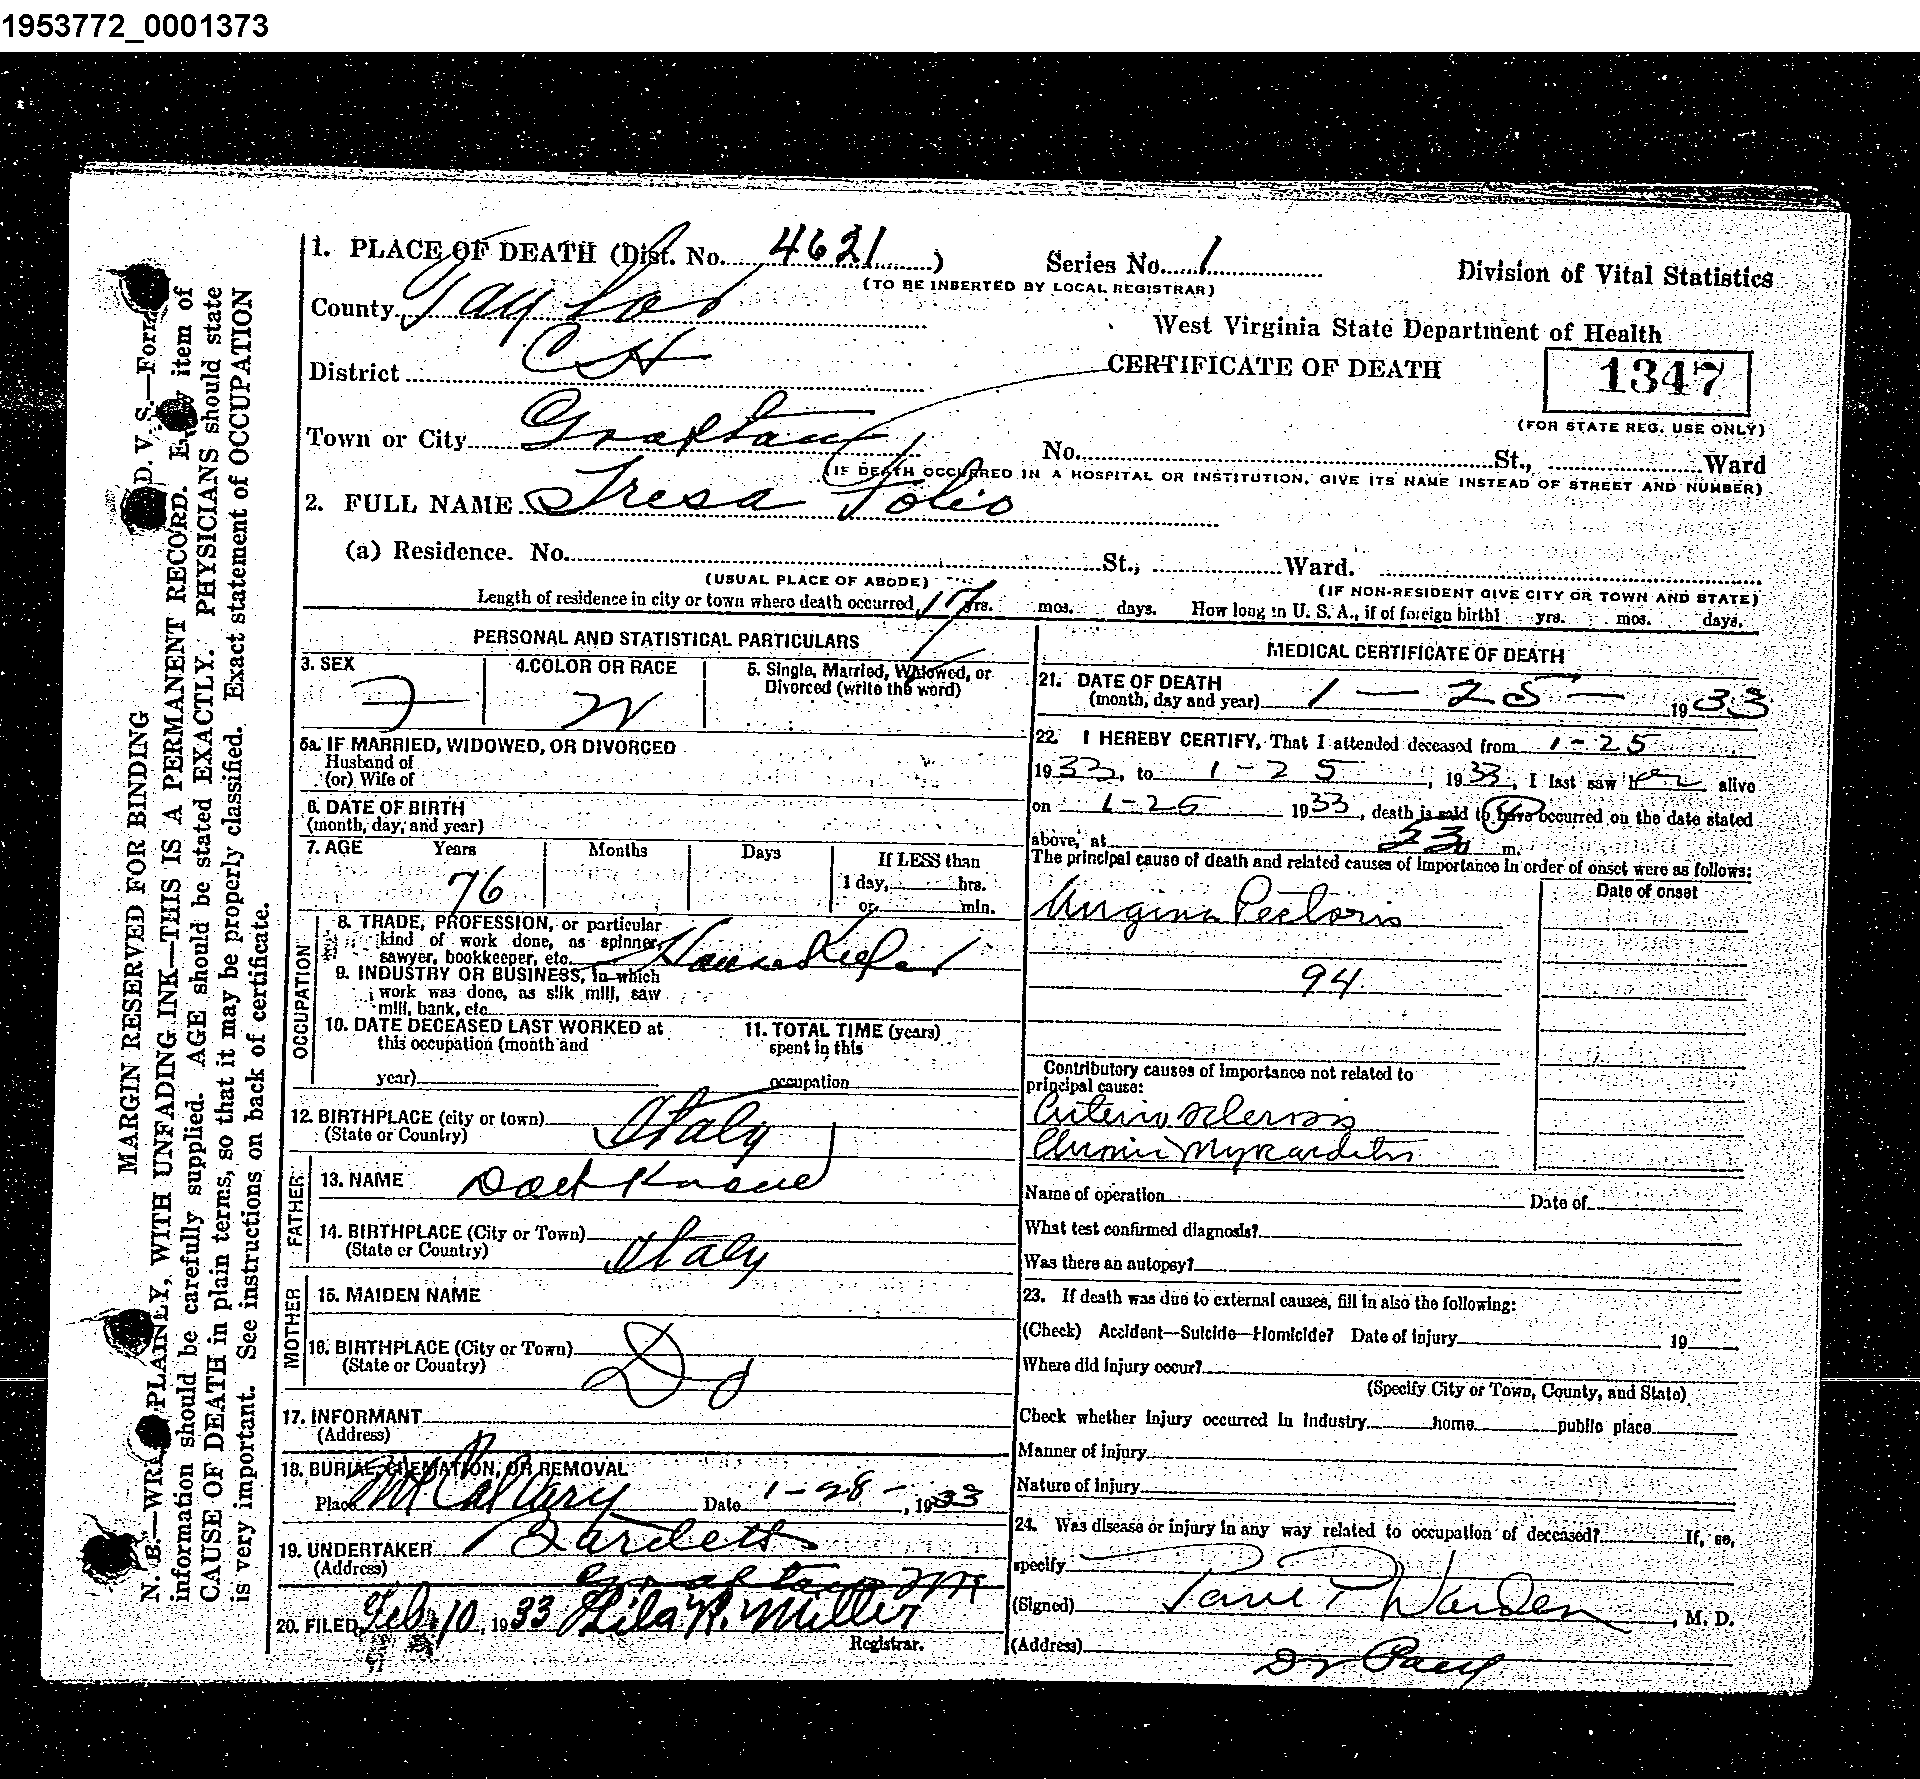 1953772_0001373
1. PLACE OF DEATH (Dist. No. 4621 ) Series No. 1
(TO BE INSERTED BY LOCAL REGISTRAR)
Division of Vital Statistics
County Taylor
West Virginia State Department of Health
District CH
CERTIFICATE OF DEATH
1347
(FOR STATE REG. USE ONLY)
Town or City Grafton
No. St., Ward
(IF DEATH OCCURRED IN A HOSPITAL OR INSTITUTION, GIVE ITS NAME INSTEAD OF STREET AND NUMBER)
2. FULL NAME Tresa Folio
(a) Residence. No. St., Ward.
(USUAL PLACE OF ABODE) (IF NON-RESIDENT GIVE CITY OR TOWN AND STATE)
Length of residence in city or town where death occurred 17 yrs. mos. days. How long in U. S. A., if of foreign birth! yrs. mos. days.
PERSONAL AND STATISTICAL PARTICULARS
3. SEX
F
4. COLOR OR RACE
W
5. Single, Married, Widowed, or
Divorced (write the word)
5a. IF MARRIED, WIDOWED, OR DIVORCED
Husband of
(or) Wife of
6. DATE OF BIRTH
(month, day, and year)
7. AGE Years Months Days If LESS than
1 day, hrs.
or min.
76
OCCUPATION
8. TRADE, PROFESSION, or particular
kind of work done, as spinner,
sawyer, bookkeeper, etc. House Keeper
9. INDUSTRY OR BUSINESS, in which
work was done, as silk mill, saw
mill, bank, etc.
10. DATE DECEASED LAST WORKED at
this occupation (month and
year)
11. TOTAL TIME (years)
spent in this
occupation
12. BIRTHPLACE (city or town)
(State or Country) Italy
FATHER
13. NAME Dont Know
14. BIRTHPLACE (City or Town)
(State or Country) Italy
MOTHER
15. MAIDEN NAME
16. BIRTHPLACE (City or Town)
(State or Country) Do
17. INFORMANT
(Address)
18. BURIAL, CREMATION, OR REMOVAL
Place Mt Calvary Date 1-28-, 1933
19. UNDERTAKER Bartlett
(Address) Grafton
20. FILED Feb. 10, 1933 R. Miller
Registrar.
MEDICAL CERTIFICATE OF DEATH
21. DATE OF DEATH
(month, day and year) 1 - 25 - 1933
22. I HEREBY CERTIFY, That I attended deceased from 1-25
1933, to 1-25, 1933, I last saw her alive
on 1-25 1933, death is said to have occurred on the date stated
above, at m.
The principal cause of death and related causes of importance in order of onset were as follows:
Date of onset
Angina Pectoris
94
Contributory causes of importance not related to
principal cause:
Arterio sclerosis
Chronic Myocarditis
Name of operation Date of
What test confirmed diagnosis?
Was there an autopsy?
23. If death was due to external causes, fill in also the following:
(Check) Accident—Suicide—Homicide? Date of injury 19
Where did injury occur?
(Specify City or Town, County, and State)
Check whether injury occurred in industry home public place
Manner of injury
Nature of injury
24. Was disease or injury in any way related to occupation of deceased? If, so,
specify
(Signed) Paul P Warden, M. D.
(Address)
MARGIN RESERVED FOR BINDING
N. B.—WRITE PLAINLY, WITH UNFADING INK—THIS IS A PERMANENT RECORD. Every item of
information should be carefully supplied. AGE should be stated EXACTLY. PHYSICIANS should state
CAUSE OF DEATH in plain terms, so that it may be properly classified. Exact statement of OCCUPATION
is very important. See instructions on back of certificate.
D. V. S.—Form